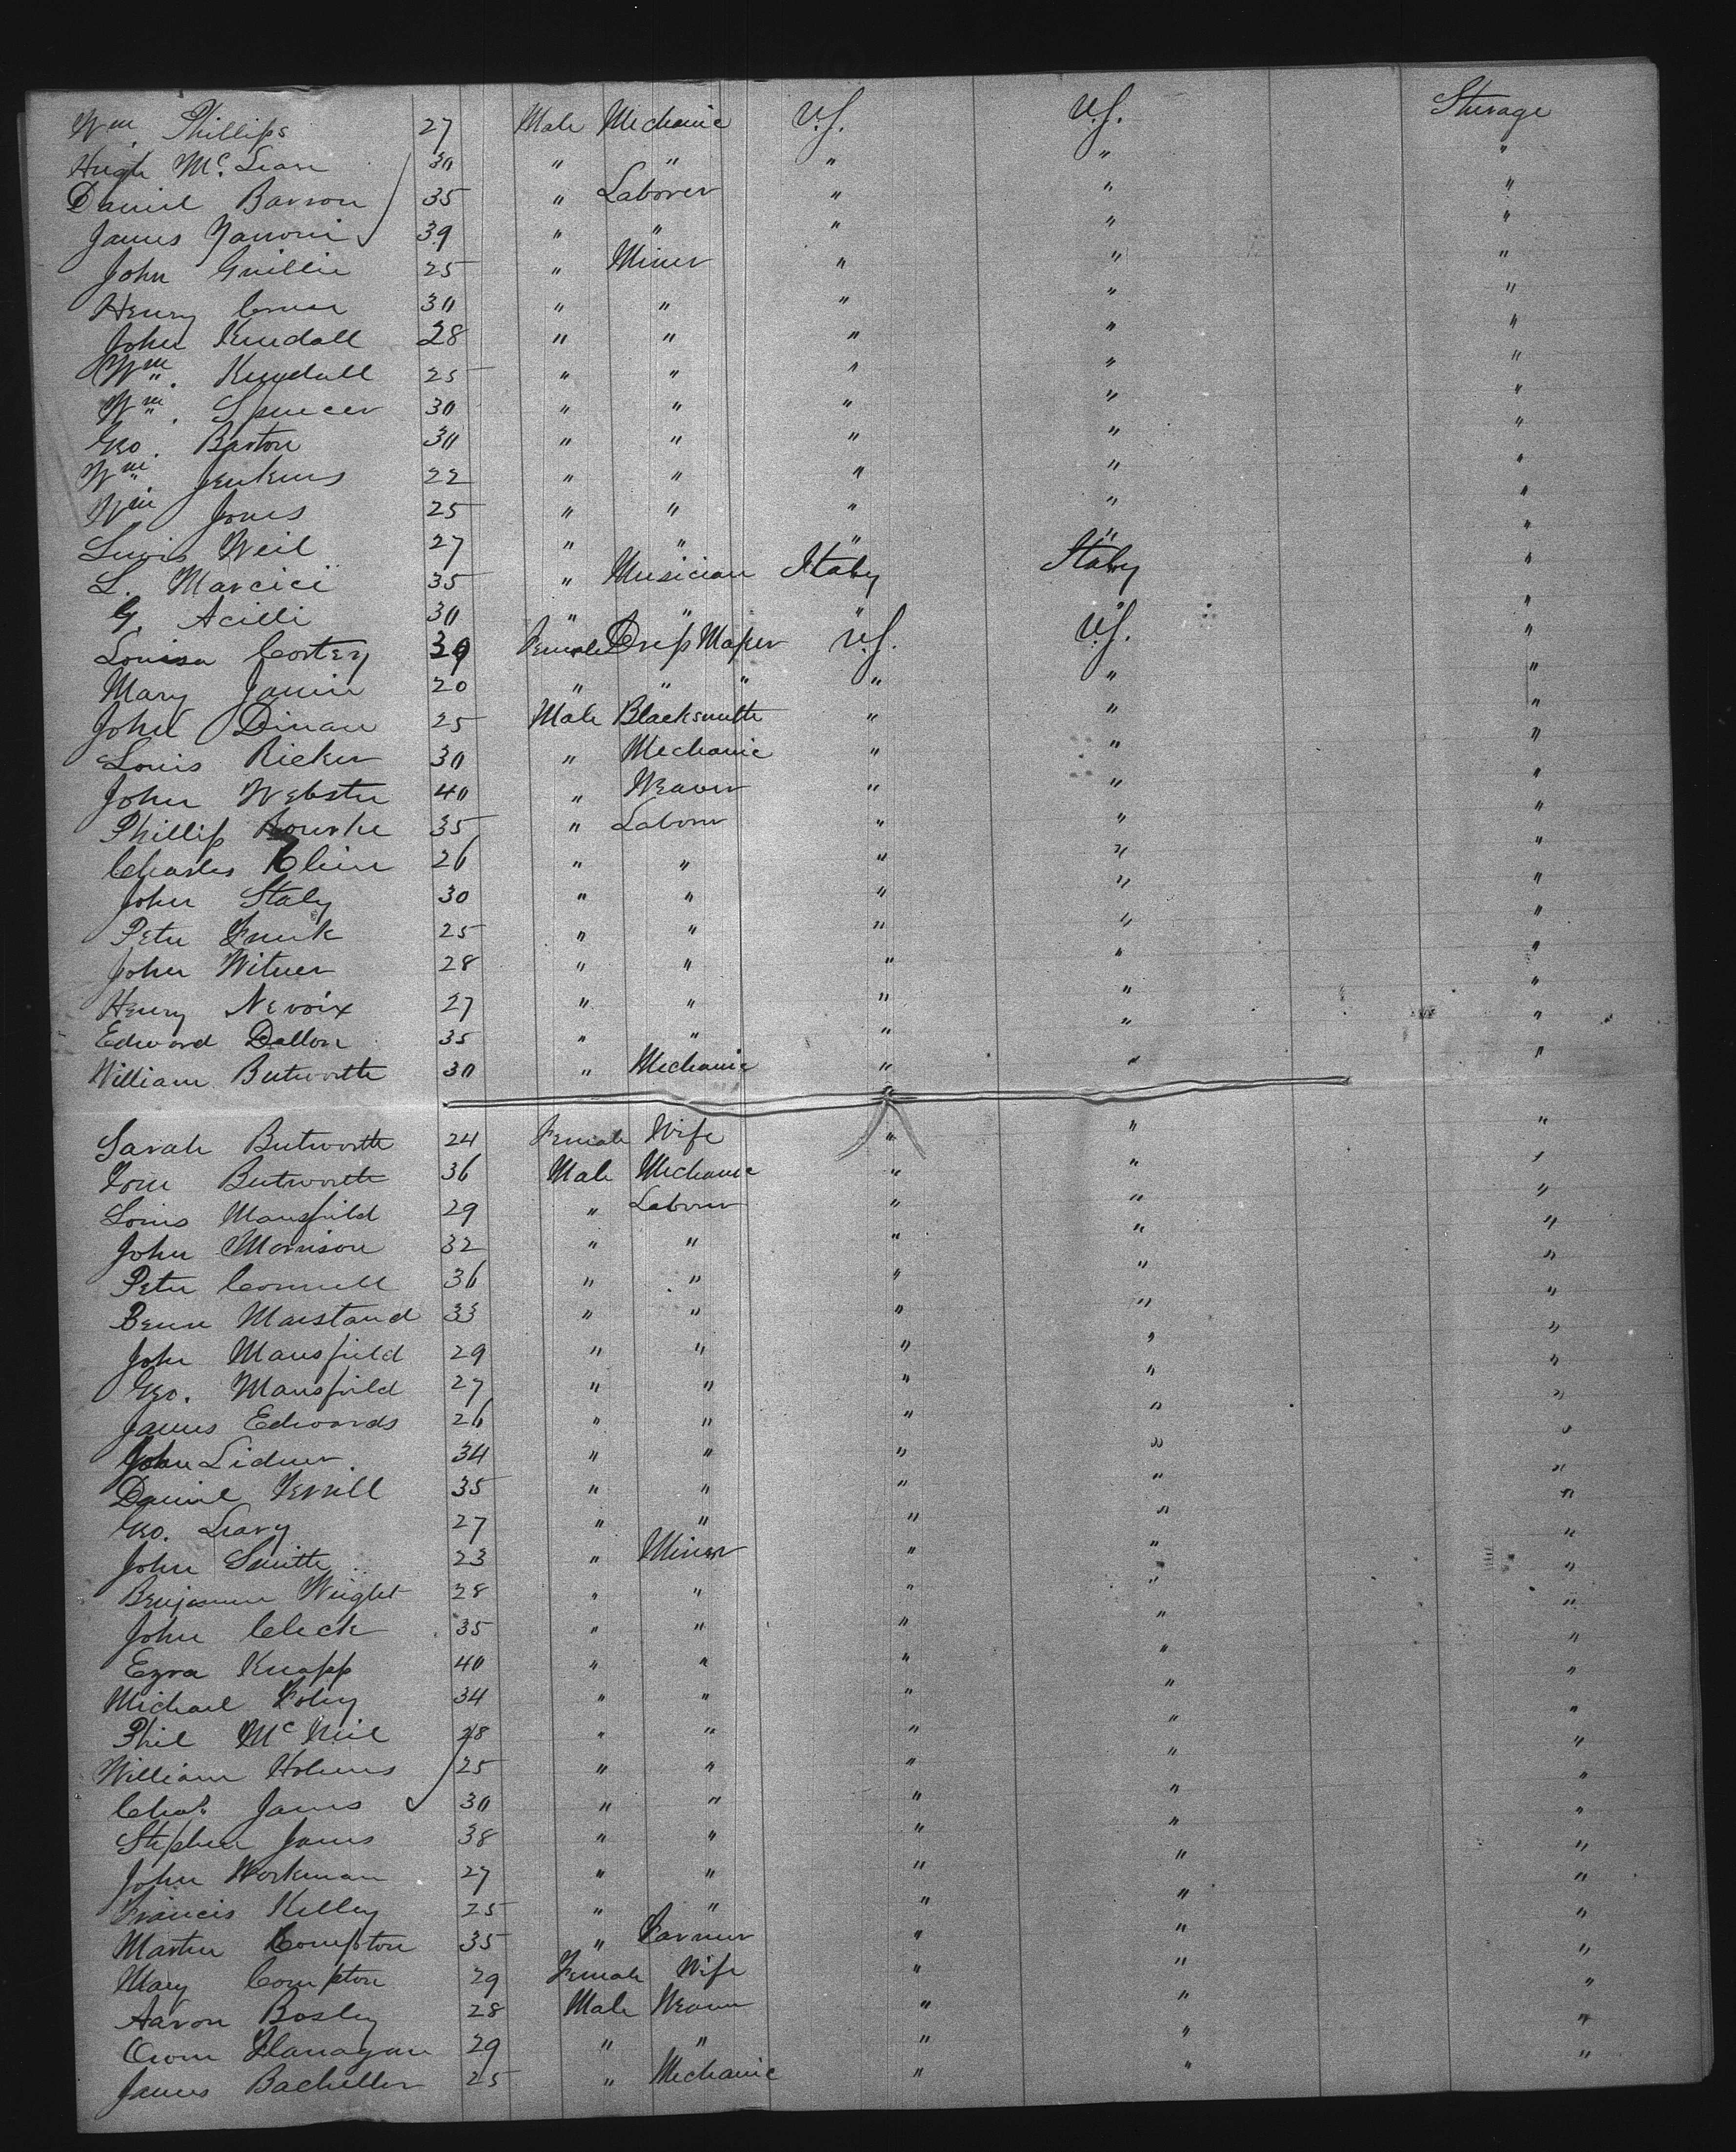 Wm. Phillips 27 Male Mechanic U.S. U.S. Sturage
Hugh Mc. Lean 30 " " " " "
Daniel Barron 35 " Laborer " " "
James 39 " " " " "
John Guillie 25 " Miner " " "
Henry 30 " " " " "
John Kendall 28 " " " " "
Wm. Kendall 25 " " " " "
Wm. Spencer 30 " " " " "
Geo. Barton 30 " " " " "
Wm. Jenkins 22 " " " " "
Wm Jones 25 " " " " "
Lewis Weil 27 " " " " "
L. Marcici 35 " Musician Italy Italy "
G. Acilli 30 " " " " "
Louisa 39 Female Dress Maker U.S. U.S. "
Mary 20 " " " " " "
John Dinan 25 Male Blacksmith " " "
Louis Ricker 30 " Mechanic " " "
John Webster 40 " Weaver " " "
Phillip Rourke 35 " Laborer " " "
Charles Kline 26 " " " " "
John Staly 30 " " " " "
Peter 25 " " " " "
John Witner 28 " " " " "
Henry Nevoix 27 " " " " "
Edward Dallon 35 " " " " "
William Butworth 30 " Mechanic " " "
Sarah Butworth 24 Female Wife " " "
Tom Butworth 36 Male Mechanic " " "
Louis Mansfield 29 " Laborer " " "
John Morrison 32 " " " " "
Peter Connell 36 " " " " "
Benn Marstand 33 " " " " "
John Mansfield 29 " " " " "
Geo. Mansfield 27 " " " " "
James Edwards 26 " " " " "
John Lidner 34 " " " " "
Daniel Terrill 35 " " " " "
Geo. Leary 27 " " " " "
John Smith 23 " Miner " " "
Benjamin Wright 28 " " " " "
John Cleck 35 " " " " "
Ezra Knapp 40 " " " " "
Michael Foley 34 " " " " "
Phil Mc Neil 28 " " " " "
William Holmes 25 " " " " "
Chas. James 30 " " " " "
Stephen James 38 " " " " "
John Workman 27 " " " " "
Francis Kelley 25 " " " " "
Martin Compton 35 " Farmer " " "
Mary Compton 29 Female Wife " " "
Aaron Bosley 28 Male Weaver " " "
Owen Flanagan 29 " " " " "
James Bacheller 25 " Mechanic " "